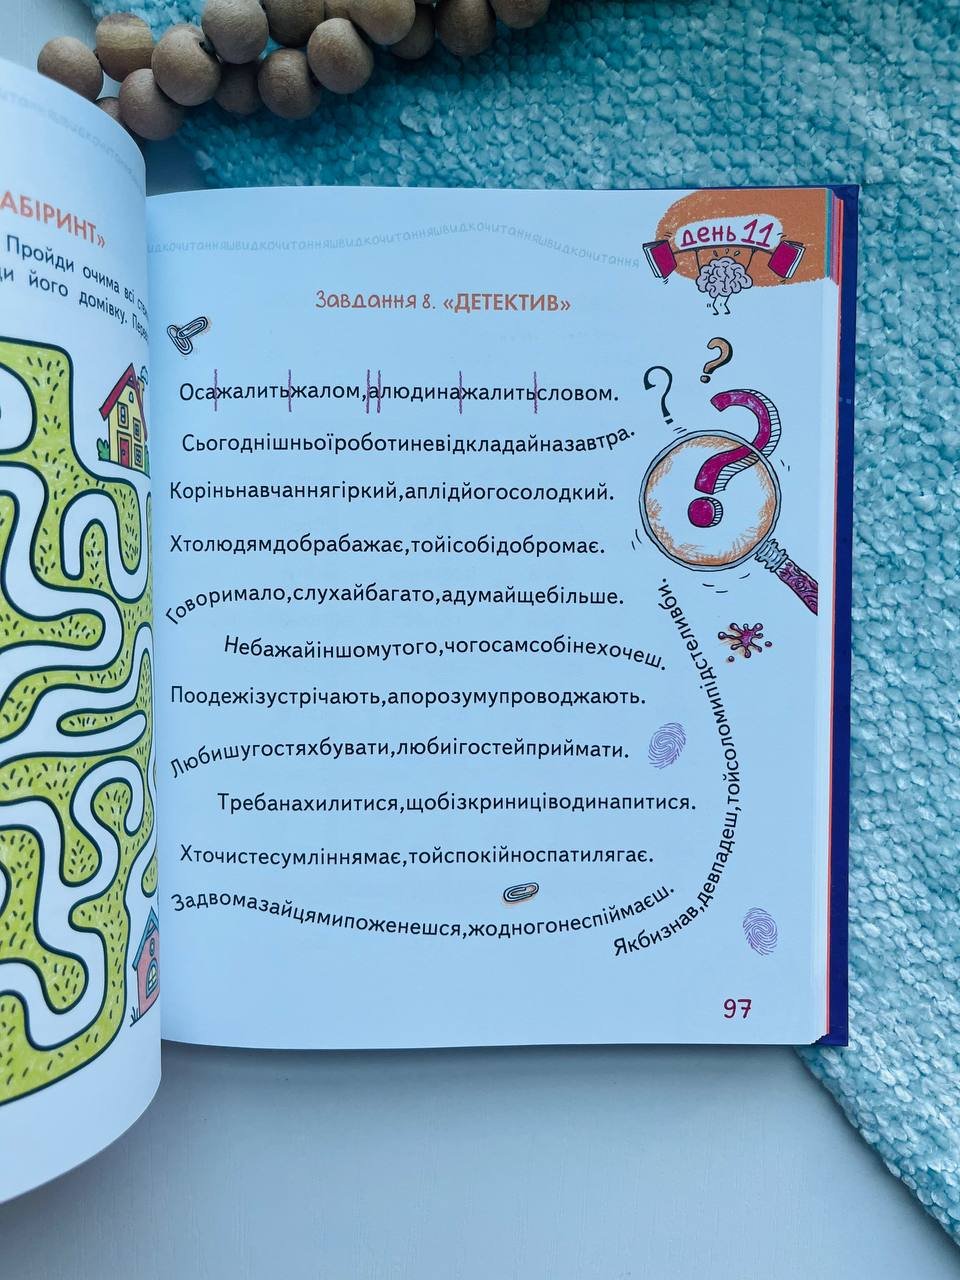 АБІРИНТ»
Пройди очима всі
ди його домівку.
швидкочитанняшвидкочитанняшвидкочитання
день 11
Завдання 8. «ДЕТЕКТИВ»
Осажалитьжалом,алюдинажалитьсловом.
Сьогоднішньоїроботиневідкладайназавтра.
Коріньнавчаннягіркий,аплідйогосолодкий.
Хтолюдямдобрабажає,тойісобідобромає.
Говоримало,слухайбагато,адумайщебільше.
Небажайіншомутого,чогосамсобінехочеш.
Поодежізустрічають,апорозумупроводжають.
Любишугостяхбувати,любиігостейприймати.
Требанахилитися,щобізкриниціводинапитися.
Хточистесумліннямає,тойспокійноспатилягає.
Задвомазайцямипоженешся,жодногонеспіймаєш.
Якбизнав,девпадеш,тойсоломипідстеливби.
97